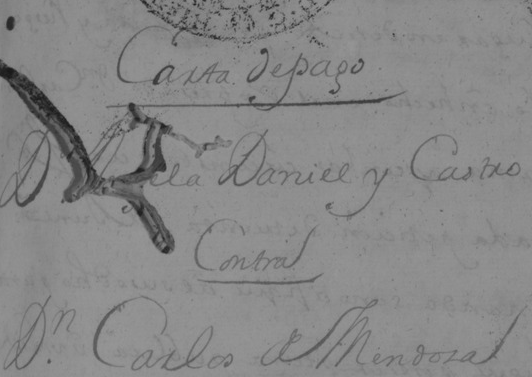 Carta de pago
D. Daniel y Castro
Contra
Dn. Carlos de Mendoza